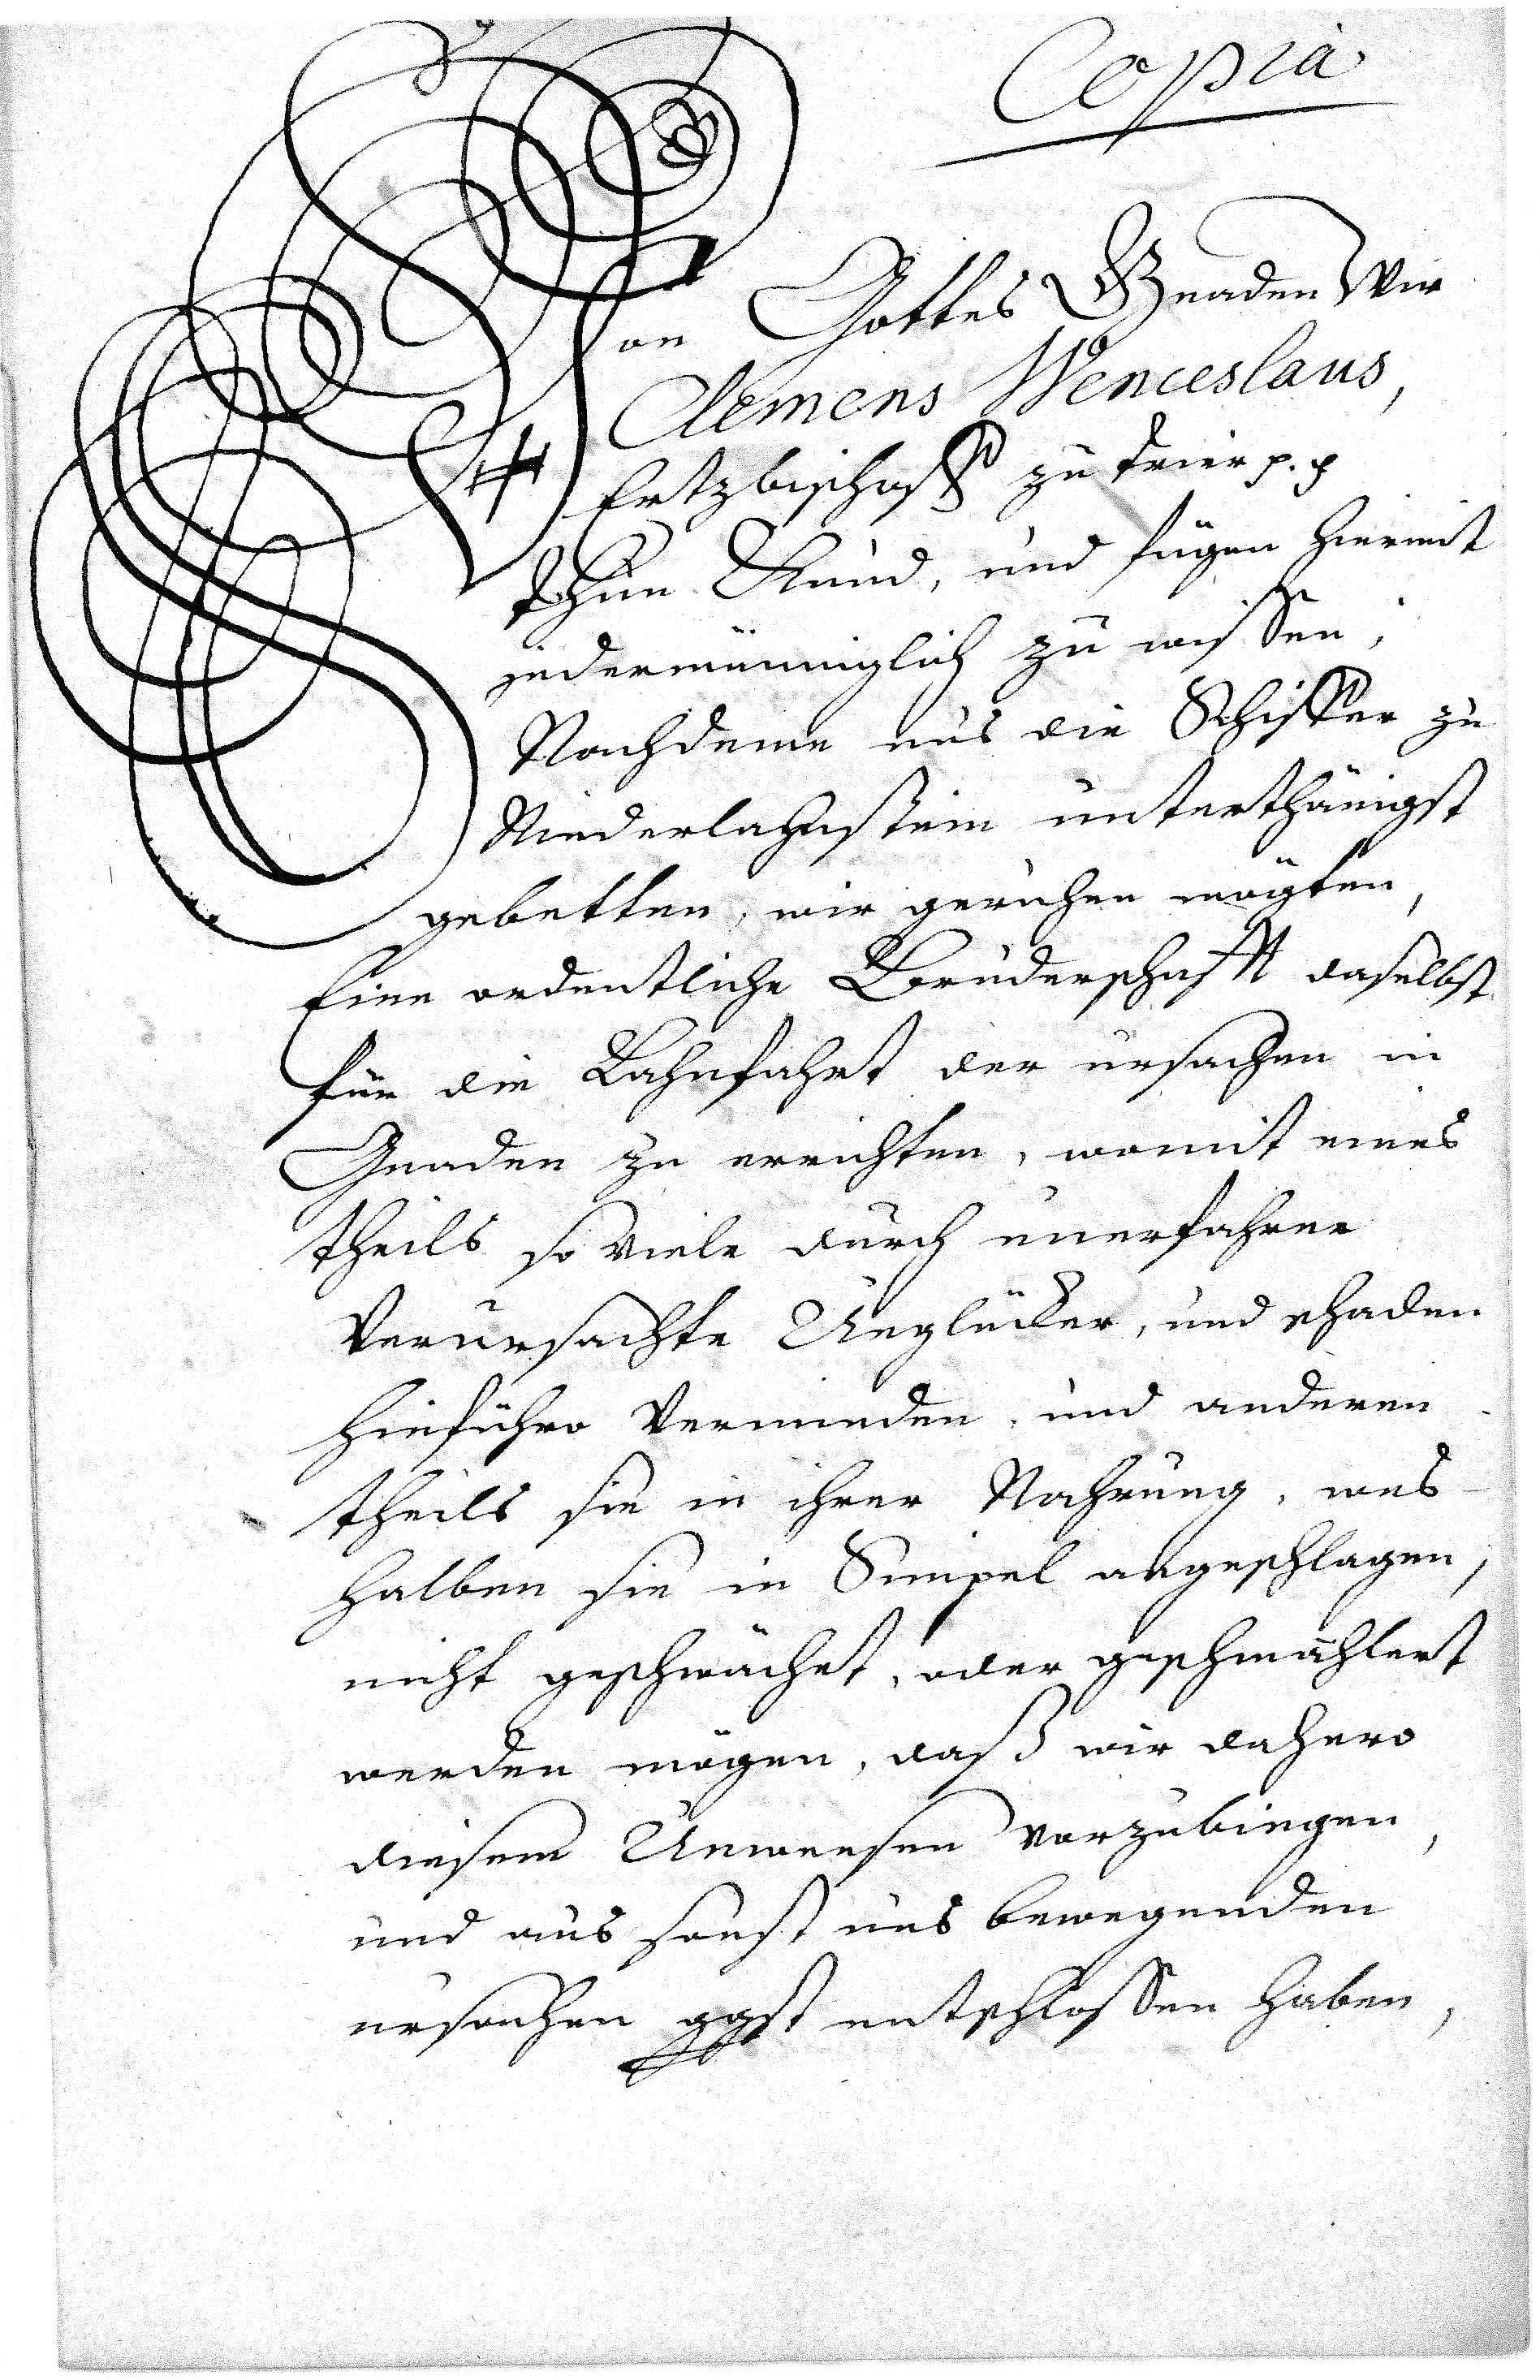 Copia
Von Gottes Gnaden Wir
Clemens Wenceslaus,
Ertzbischoff zu Trier p. p
thun Kund, und fügen hiermit
jedermänniglich zu wissen;
Nachdeme uns die Schiffer zu
Niederlahnstein unterthänigst
gebetten, wir geruhen mögten,
Eine ordentliche Bruderschafft daselbst
für die Lahnfahrt der ursachen in
Gnaden zu errichten, womit eines
theils so viele durch unerfahrne
Verursachte Unglücker, und schaden
hinführo Vermieden, und anderen
theils sie in ihrer Nahrung, wes-
halben sie in Simpel angeschlagen,
nicht geschwächet, oder geschmählert
werden mögen, daß wir dahero
diesem Unweesen vorzubiegen,
und aus sonst uns bewegenden
ursachen ggst entschlossen haben,